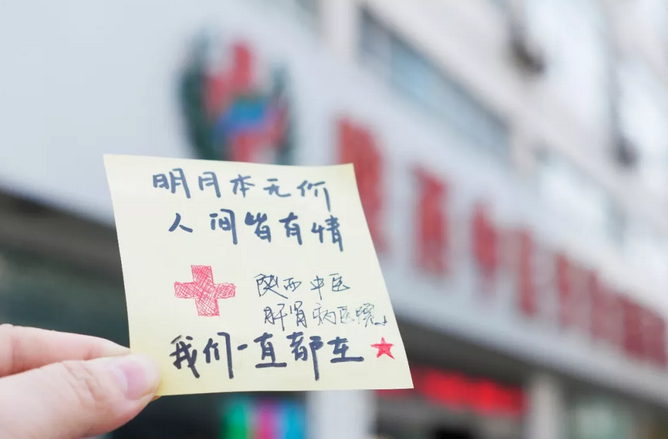 明月本无价
人间皆有情
陕西中医
肝肾病医院
我们一直都在